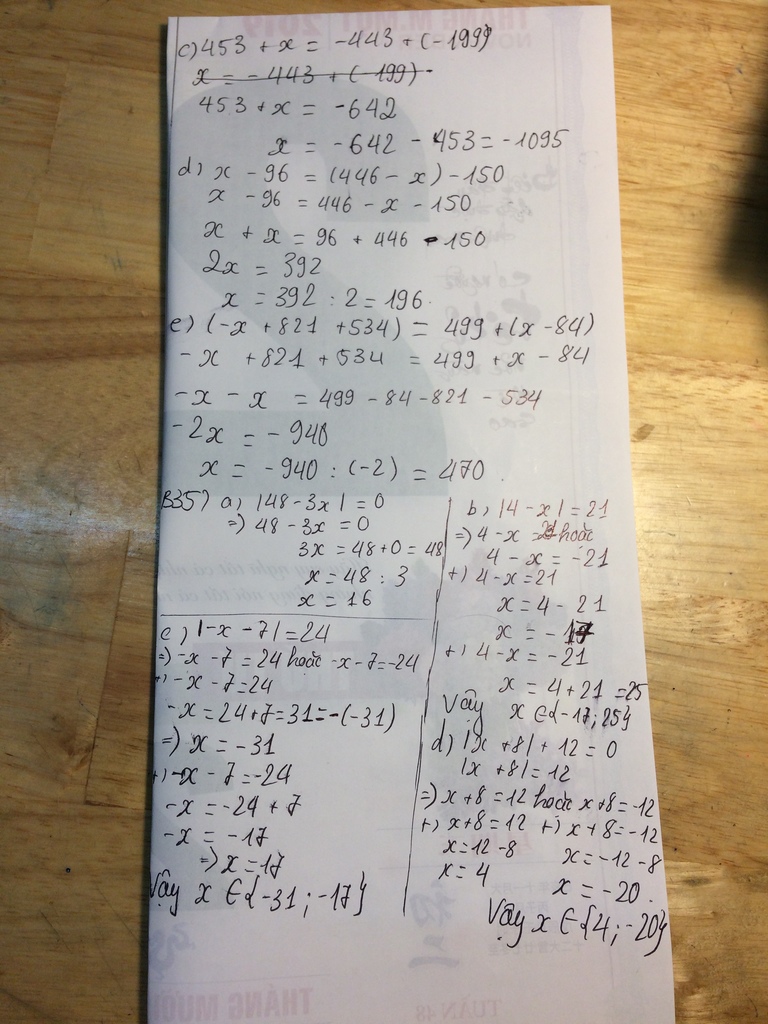 c) 453 + x = -443 + (-199)
x = -443 + (-199)
453 + x = -642
x = -642 - 453 = -1095
d) x - 96 = (446 - x) - 150
x - 96 = 446 - x - 150
x + x = 96 + 446 - 150
2x = 392
x = 392 : 2 = 196.
e) (-x + 821 + 534) = 499 + (x - 84)
-x + 821 + 534 = 499 + x - 84
-x - x = 499 - 84 - 821 - 534
-2x = -940
x = -940 : (-2) = 470.
B35) a) |48 - 3x| = 0
=) 48 - 3x = 0
3x = 48 + 0 = 48
x = 48 : 3
x = 16
b) |4 - x| = 21
=) 4 - x = 21 hoặc
4 - x = -21
+) 4 - x = 21
x = 4 - 21
x = -17
+) 4 - x = -21
x = 4 + 21 = 25
Vậy x ∈ {-17; 25}
c) |-x - 7| = 24
=) -x - 7 = 24 hoặc -x - 7 = -24
+) -x - 7 = 24
-x = 24 + 7 = 31 = -(-31)
=) x = -31
+) -x - 7 = -24
-x = -24 + 7
-x = -17
=) x = 17
Vậy x ∈ {-31; -17}
d) |x + 8| + 12 = 0
|x + 8| = 12
=) x + 8 = 12 hoặc x + 8 = -12
+) x + 8 = 12 +) x + 8 = -12
x = 12 - 8 x = -12 - 8
x = 4 x = -20.
Vậy x ∈ {4; -20}